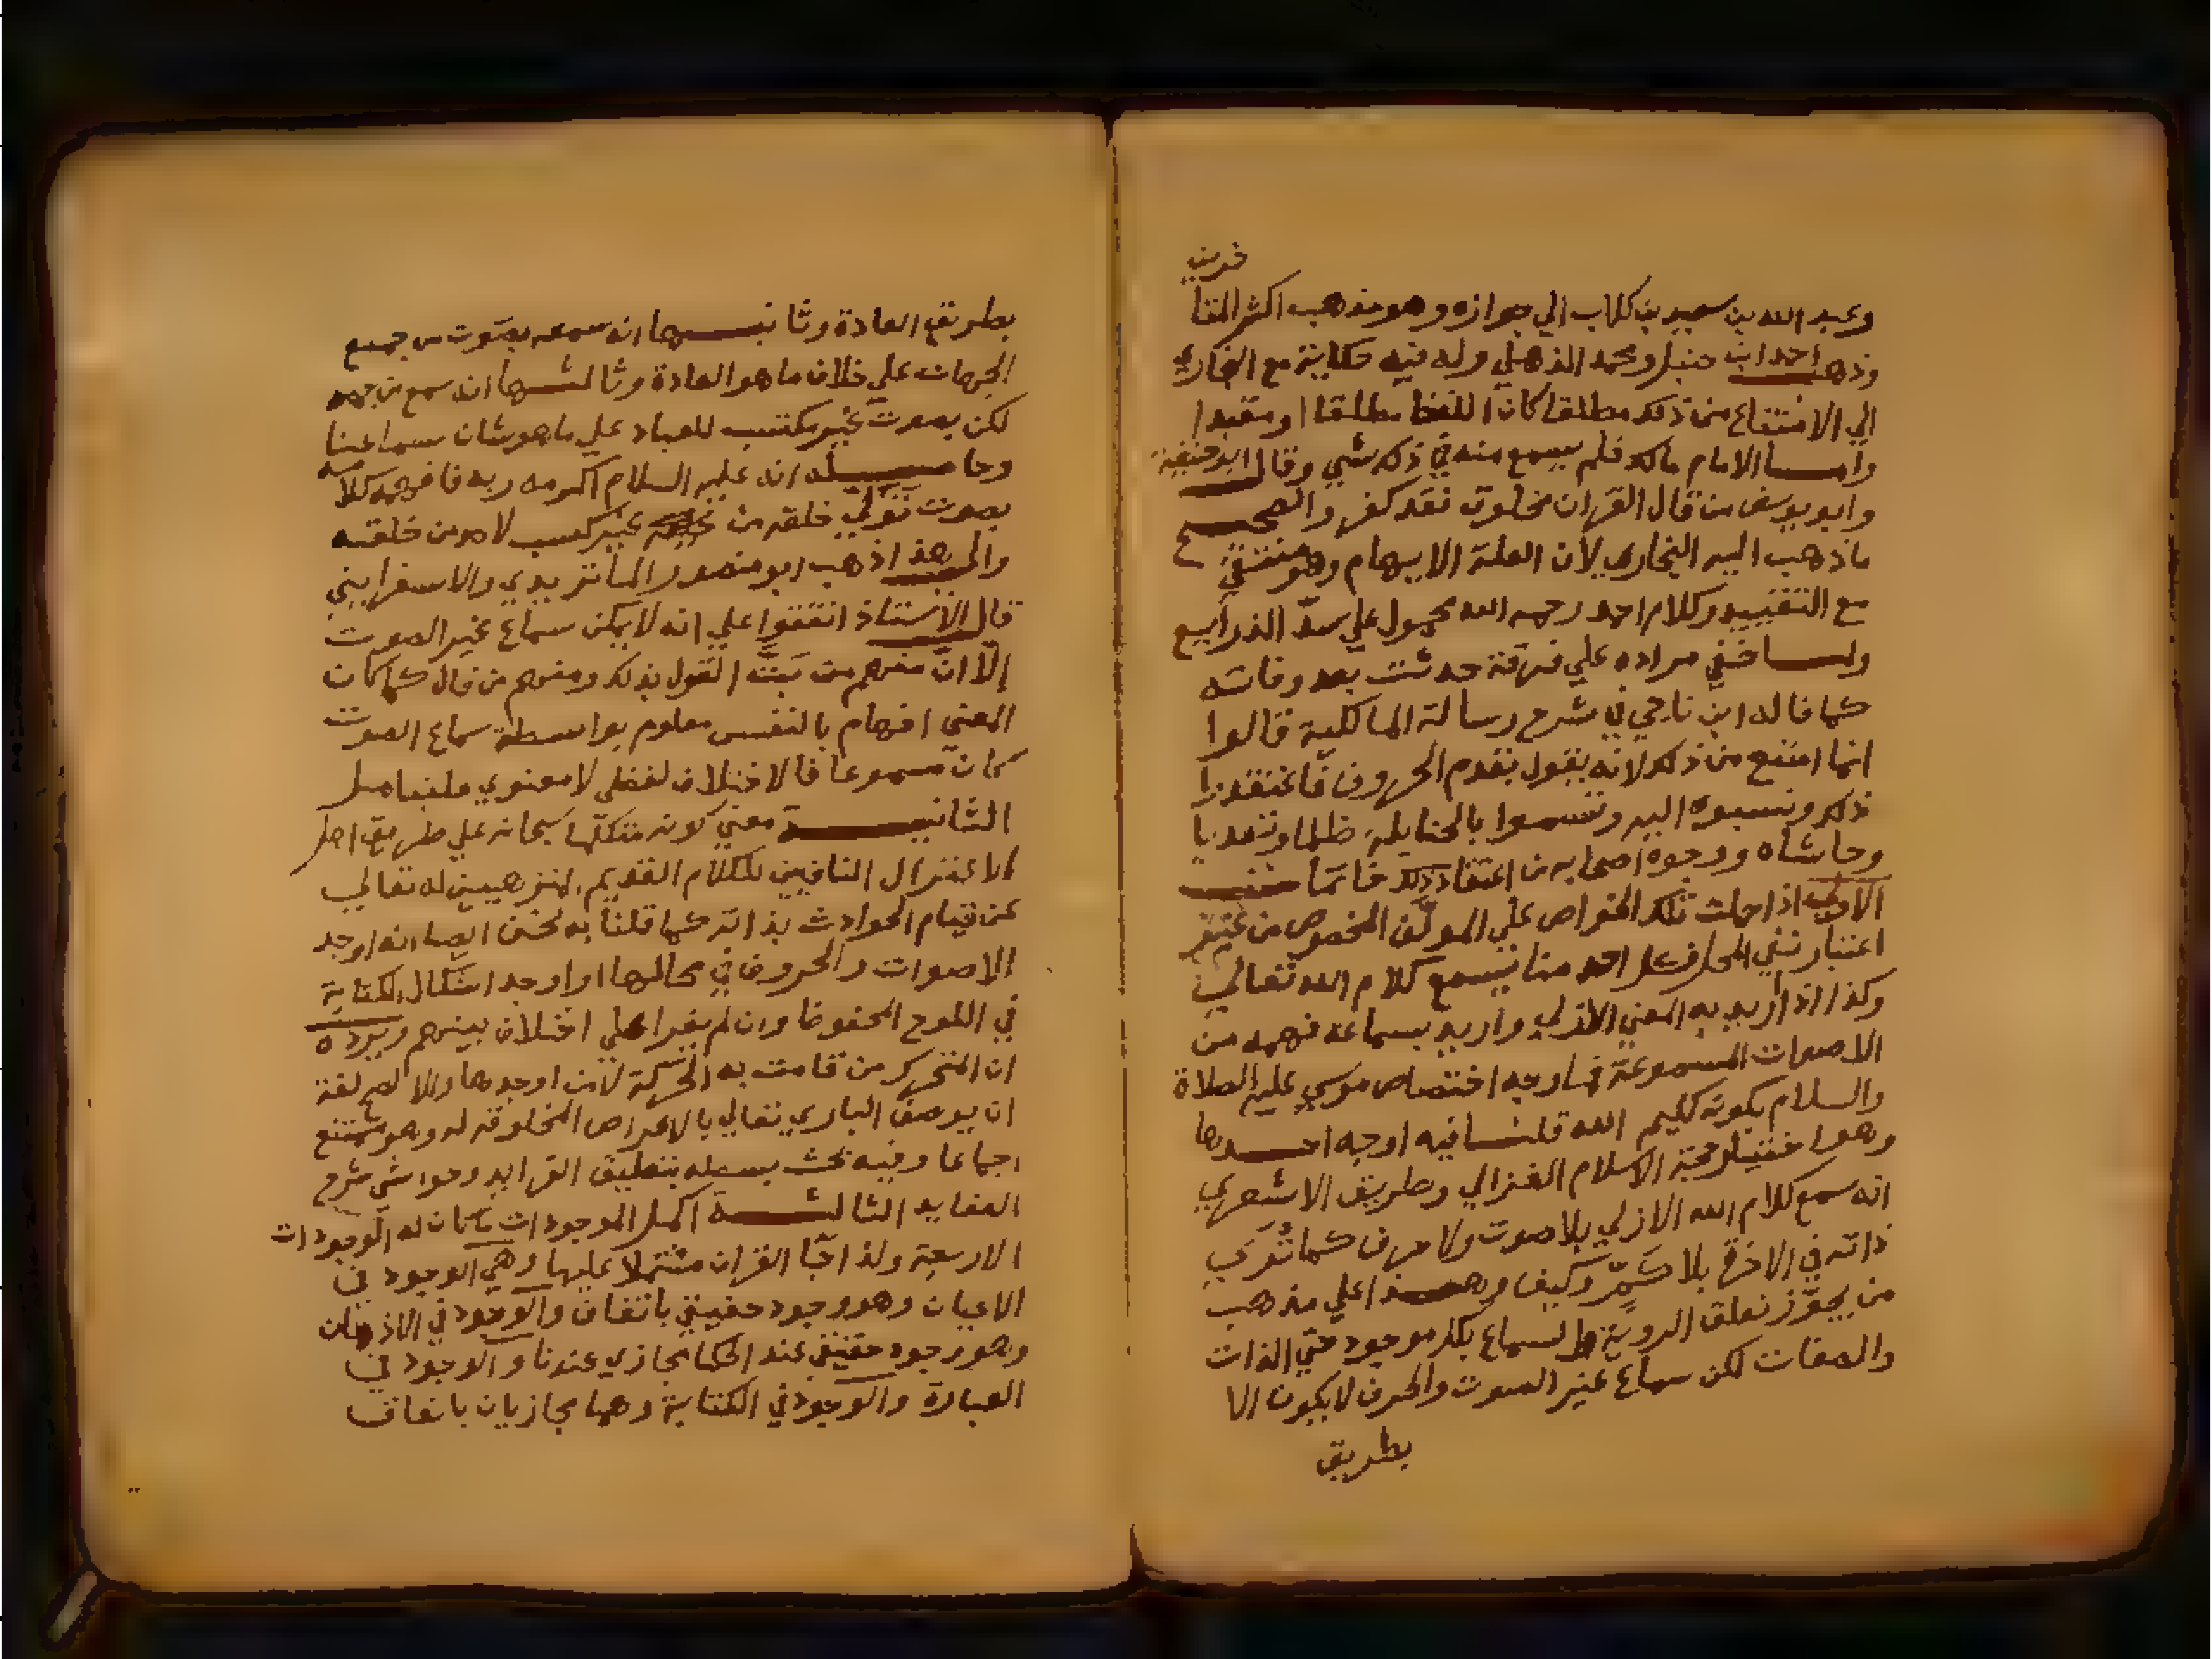 خرين
وعبد الله بن سعيد بن كلاب الي جوازه وهو مذهب اكثر المتا
وذهب احمد ابن حنبل ومحمد الذهلي وله فيه حكاية مع البخاري
الي الامتناع من ذلك مطلقا كان اللفظ مطلقا او مقيدا
واما الامام مالك فلم يسمع منه في ذلك شي وقال ابو حنيفة
وابو يوسف من قال القران مخلوق فقد كفر والصحيح
ما ذهب اليه البخاري لان العلة الايهام وهو منتفي
مع التقييد وكلام احمد رحمه الله محمول علي سد الذرايع
ولما خفي مراده علي فرقة حدثت بعد وفاته
كما قاله ابن ناجي في شرح رسالة المالكية قالوا
انما امتنع من ذلك لانه يقول بقدم الحروف فاعتقدوا
ذلك ونسبوه اليه وتسموا بالحنابلة ظلما وتعديا
وحاشاه ووجوه اصحابه من اعتقاد ذلك خاتمة
الاولي اذا حملت تلك الخواص علي المولف المخصوص من غير
اعتبار تفي المحل فكل احد منا يسمع كلام الله تعالي
وكذا اذا اريد به المعني الازلي واريد بسماعه فهمه من
الاصوات المسموعة فما وجه اختصاص موسي عليه الصلاة
والسلام بكونه كليم الله قلنا فيه اوجه احدها
وهو اختيار حجة الاسلام الغزالي وطريق الاشعري
انه سمع كلام الله الازلي بلا صوت ولا حرف كما تري
ذاته في الاخرة بلا كم وكيف وهذا علي مذهب
من يجوز تعلق الروية والسماع بكل موجود حتي الذات
والصفات لكن سماع غير الصوت والحرف لا يكون الا
بطريق
بطريق العادة وثانيها انه سمعه بصوت من جميع
الجهات علي خلاف ما هو العادة وثالثها انه سمع من جهة
لكن بصوت غير مكتسب للعباد علي ما هو شان سماعنا
وحاصله انه عليه السلام اكرمه ربه فافهمه كلامه
بصوت تولي خلقه من غير كسب لاحد من خلقه
والي هذا ذهب ابو منصور الماتريدي والاسفرايني
قال الاستاذ اتفقوا علي انه لا يمكن سماع غير الصوت
إلا ان منهم من بت القول بذلك ومنهم من قال كما كان
المعني افهام بالنفس معلوم بواسطة سماع الصوت
كان مسموعا فالاختلاف لفظي لا معنوي
الثانية معني كونه متكلما سبحانه علي طريق اهل
الاعتزال النافيين للكلام القديم لمنزهيين له تعالي
عن قيام الحوادث بذاته كما قلنا به نحن ايضا انه اوجد
الاصوات والحروف في محالها او اوجد اشكال الكتابة
في اللوح المحفوظ وان لم يقرا علي اختلاف بينهم ويرده
ان المتحرك من قامت به الحركة لا من اوجدها والا لصح لغة
ان يوصف الباري تعالي بالاعراض المخلوقة له وهو ممتنع
اجماعا وفيه بحث بسطه بتعليق الفرايد وحواشي شرح
العقايد الثالثة اكمل الموجودات ما كان له الوجودات
الاربعة ولذا جا القران مشتملا عليها وهي الوجود في
الاعيان وهو وجود حقيقي باتفاق والوجود في الاذهان
وهو وجود حقيقي عند الحكما مجازي عندنا والوجود في
العبارة والوجود في الكتابة وهما مجازيان باتفاق